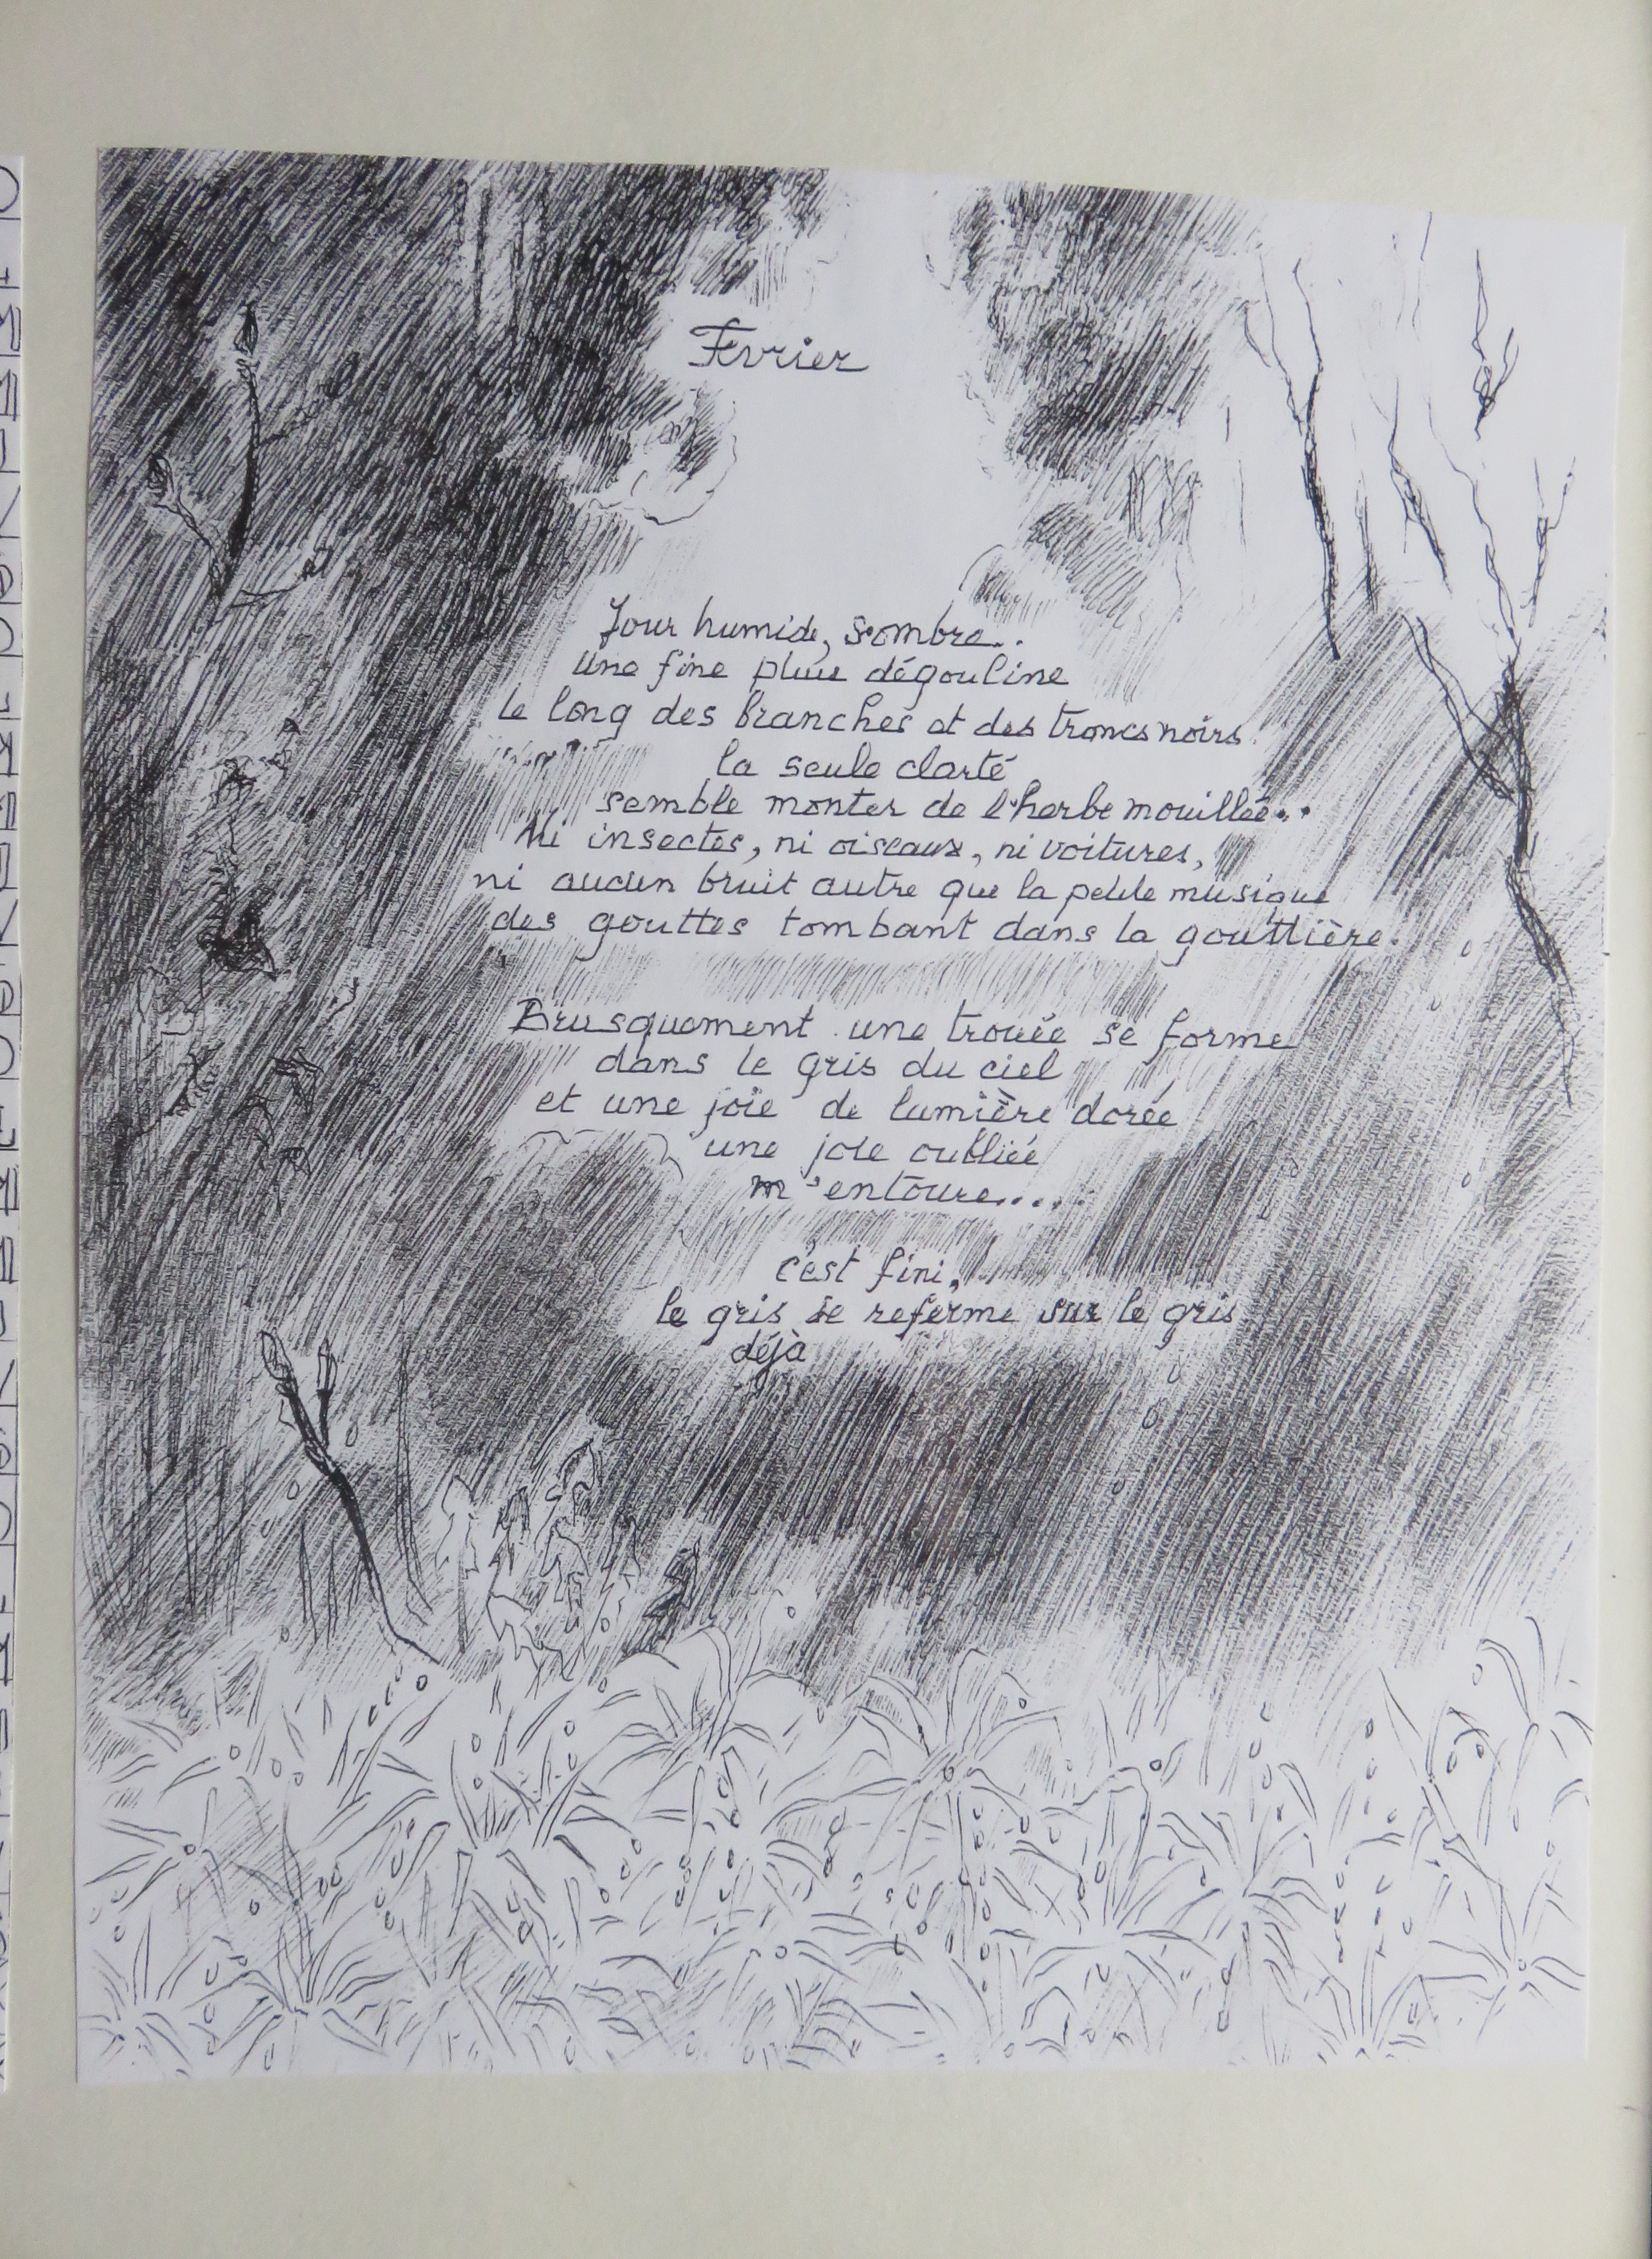 Février
Jour humide, sombre..
Une fine pluie dégouline
le long des branches et des troncs noirs.
la seule clarté
semble monter de l'herbe mouillée..
Ni insectes, ni oiseaux, ni voitures,
ni aucun bruit autre que la petite musique
des gouttes tombant dans la gouttière.
Brusquement une trouée se forme
dans le gris du ciel
et une joie de lumière dorée
une joie oubliée
m'entoure....
c'est fini,
le gris se referme sur le gris
déjà